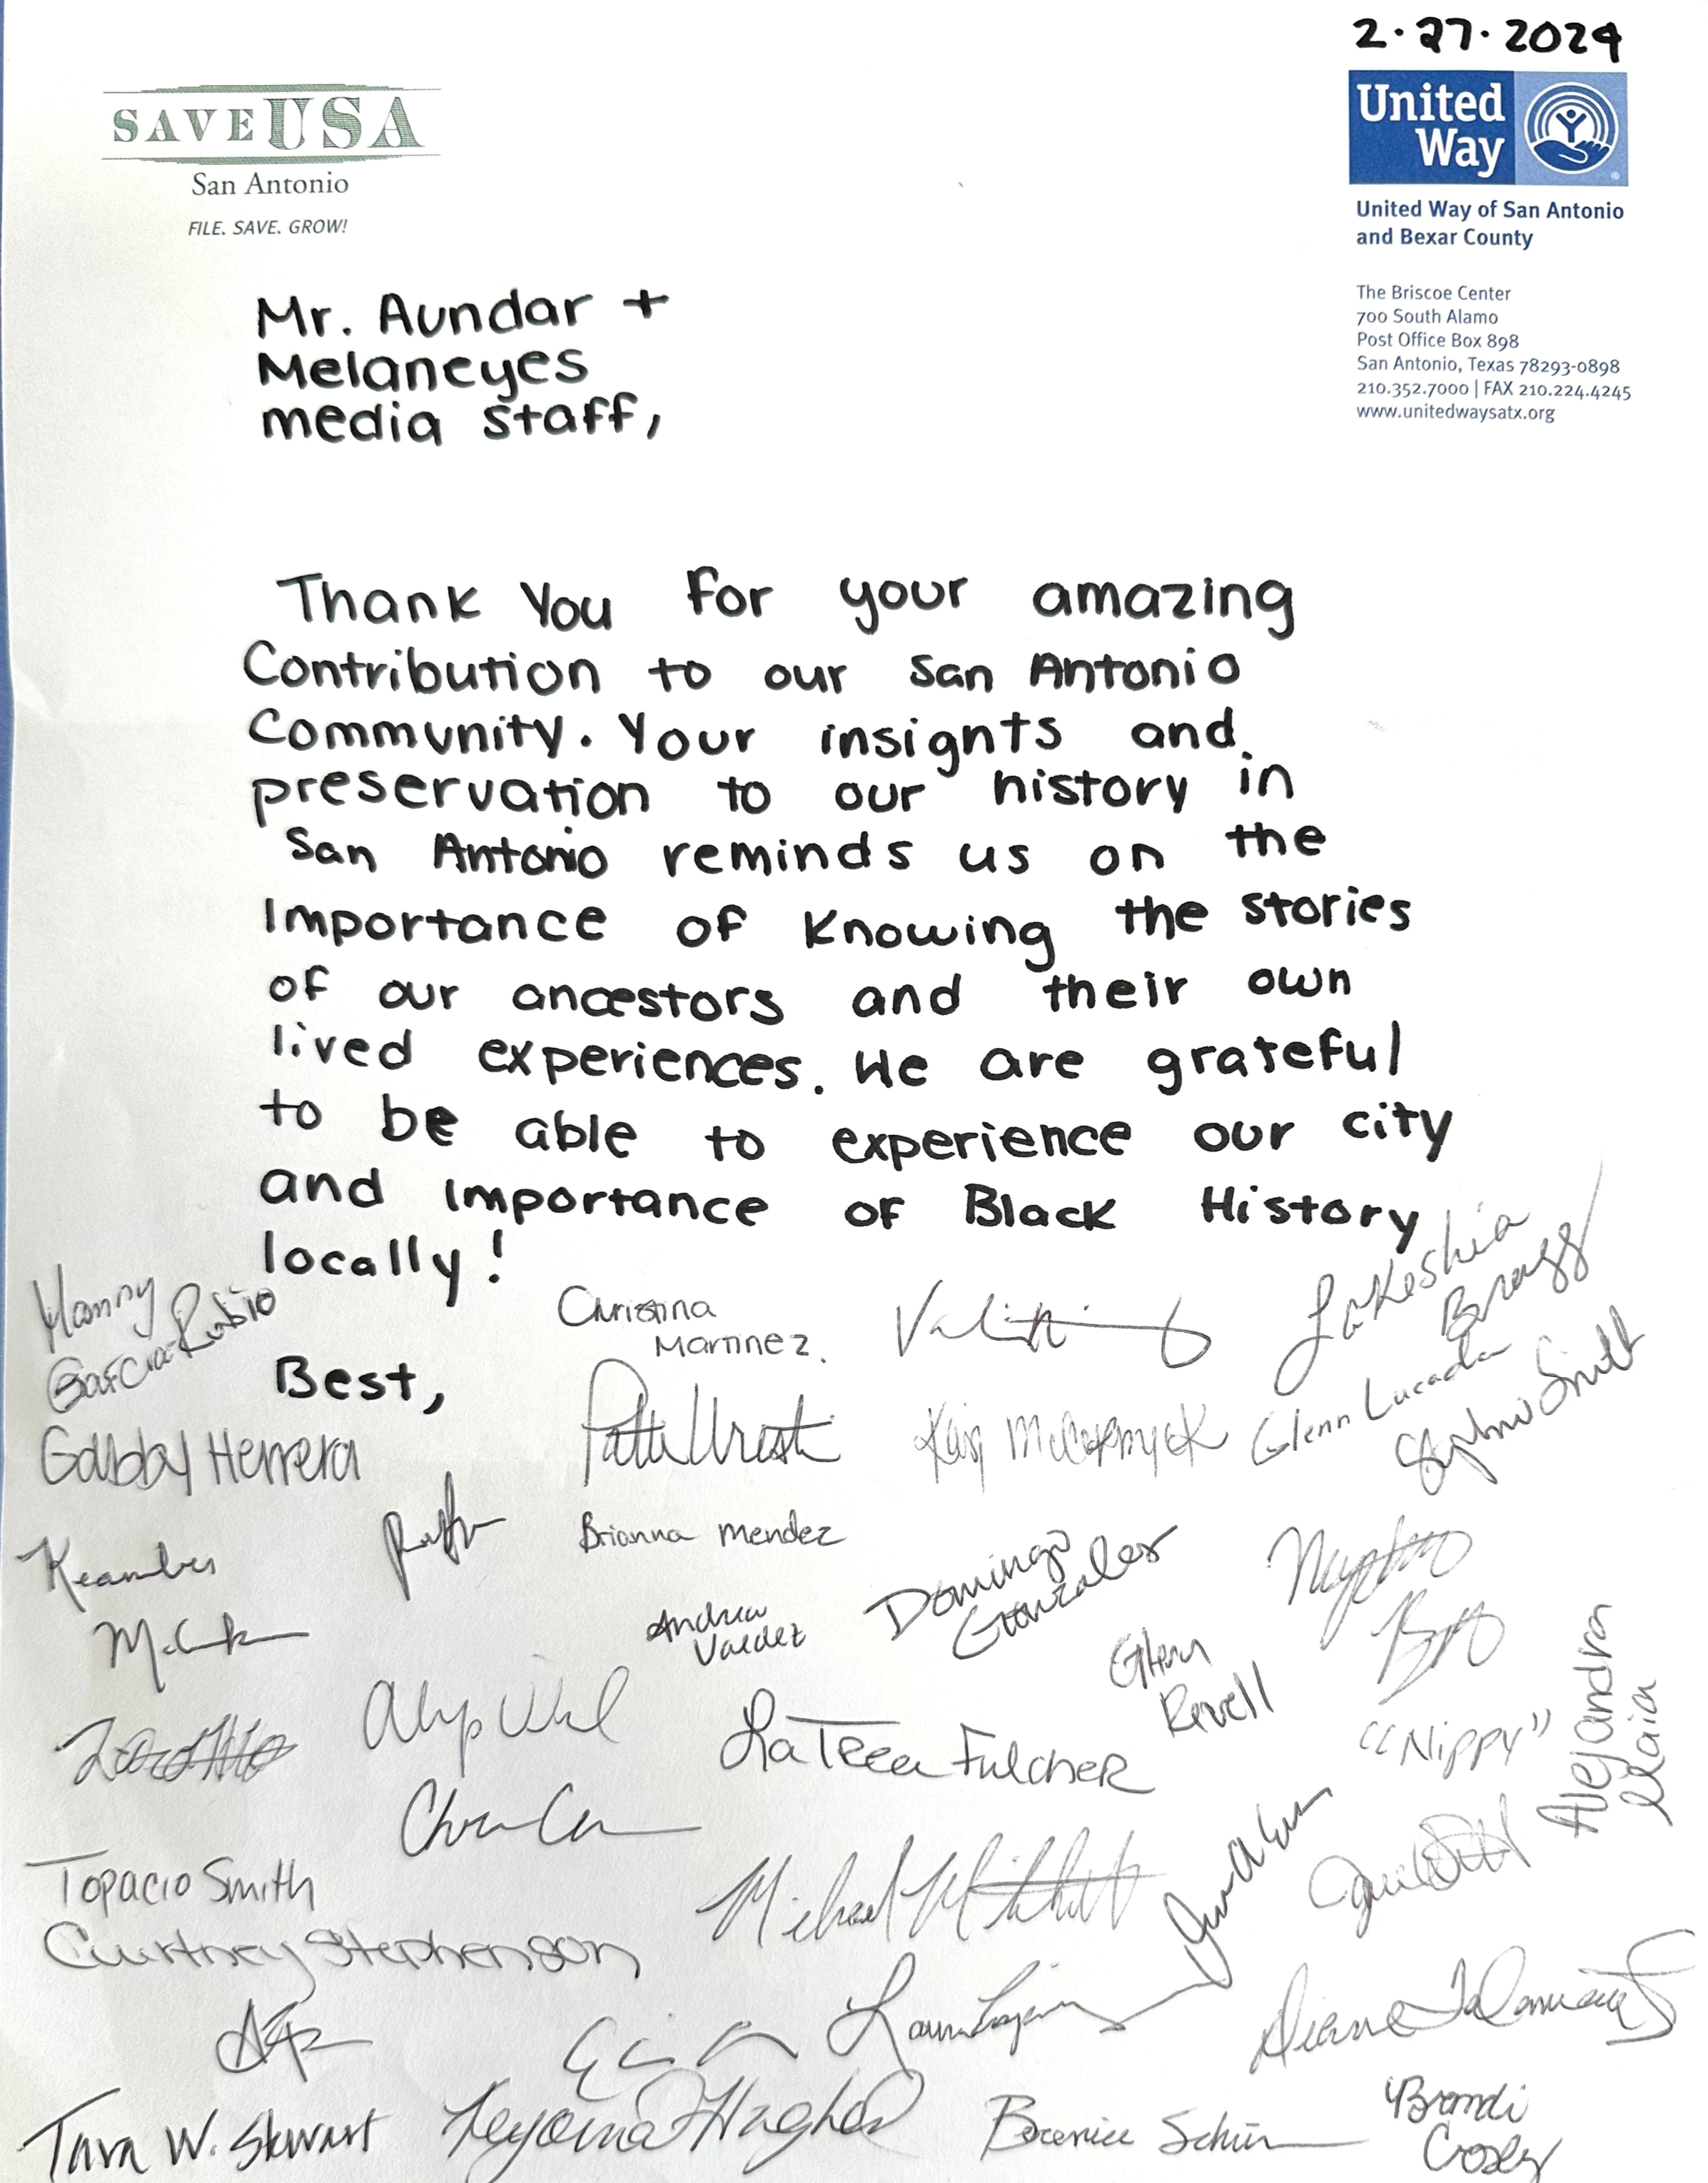 2·27·2024
SAVEUSA
San Antonio
FILE. SAVE. GROW!
United
Way
United Way of San Antonio
and Bexar County
The Briscoe Center
700 South Alamo
Post Office Box 898
San Antonio, Texas 78293-0898
210.352.7000 | FAX 210.224.4245
www.unitedwaysatx.org
Mr. Aundar +
Melaneyes
media staff,
Thank You for your amazing
Contribution to our San Antonio
Community. Your insights and
preservation to our history in
San Antonio reminds us on the
Importance of Knowing the stories
of our ancestors and their own
lived experiences. We are grateful
to be able to experience our city
and Importance of Black History
locally!
Manny
Garcia-Rubio
Christina
Martinez.
Lakeshia
Bragg
Best,
Gabby Herrera
Glenn Lucado
Stephanie Smith
Brianna Mendez
Domingo
Gonzales
Andrew
Valdez
Glenn
Revell
LaTreea Fulcher
"Nippy"
Alejandra
Topacio Smith
Michael
Courtney Stephenson
Diane
Tara W. Stewart
Keyouna Hughes
Berenice
Brandi
Crosley